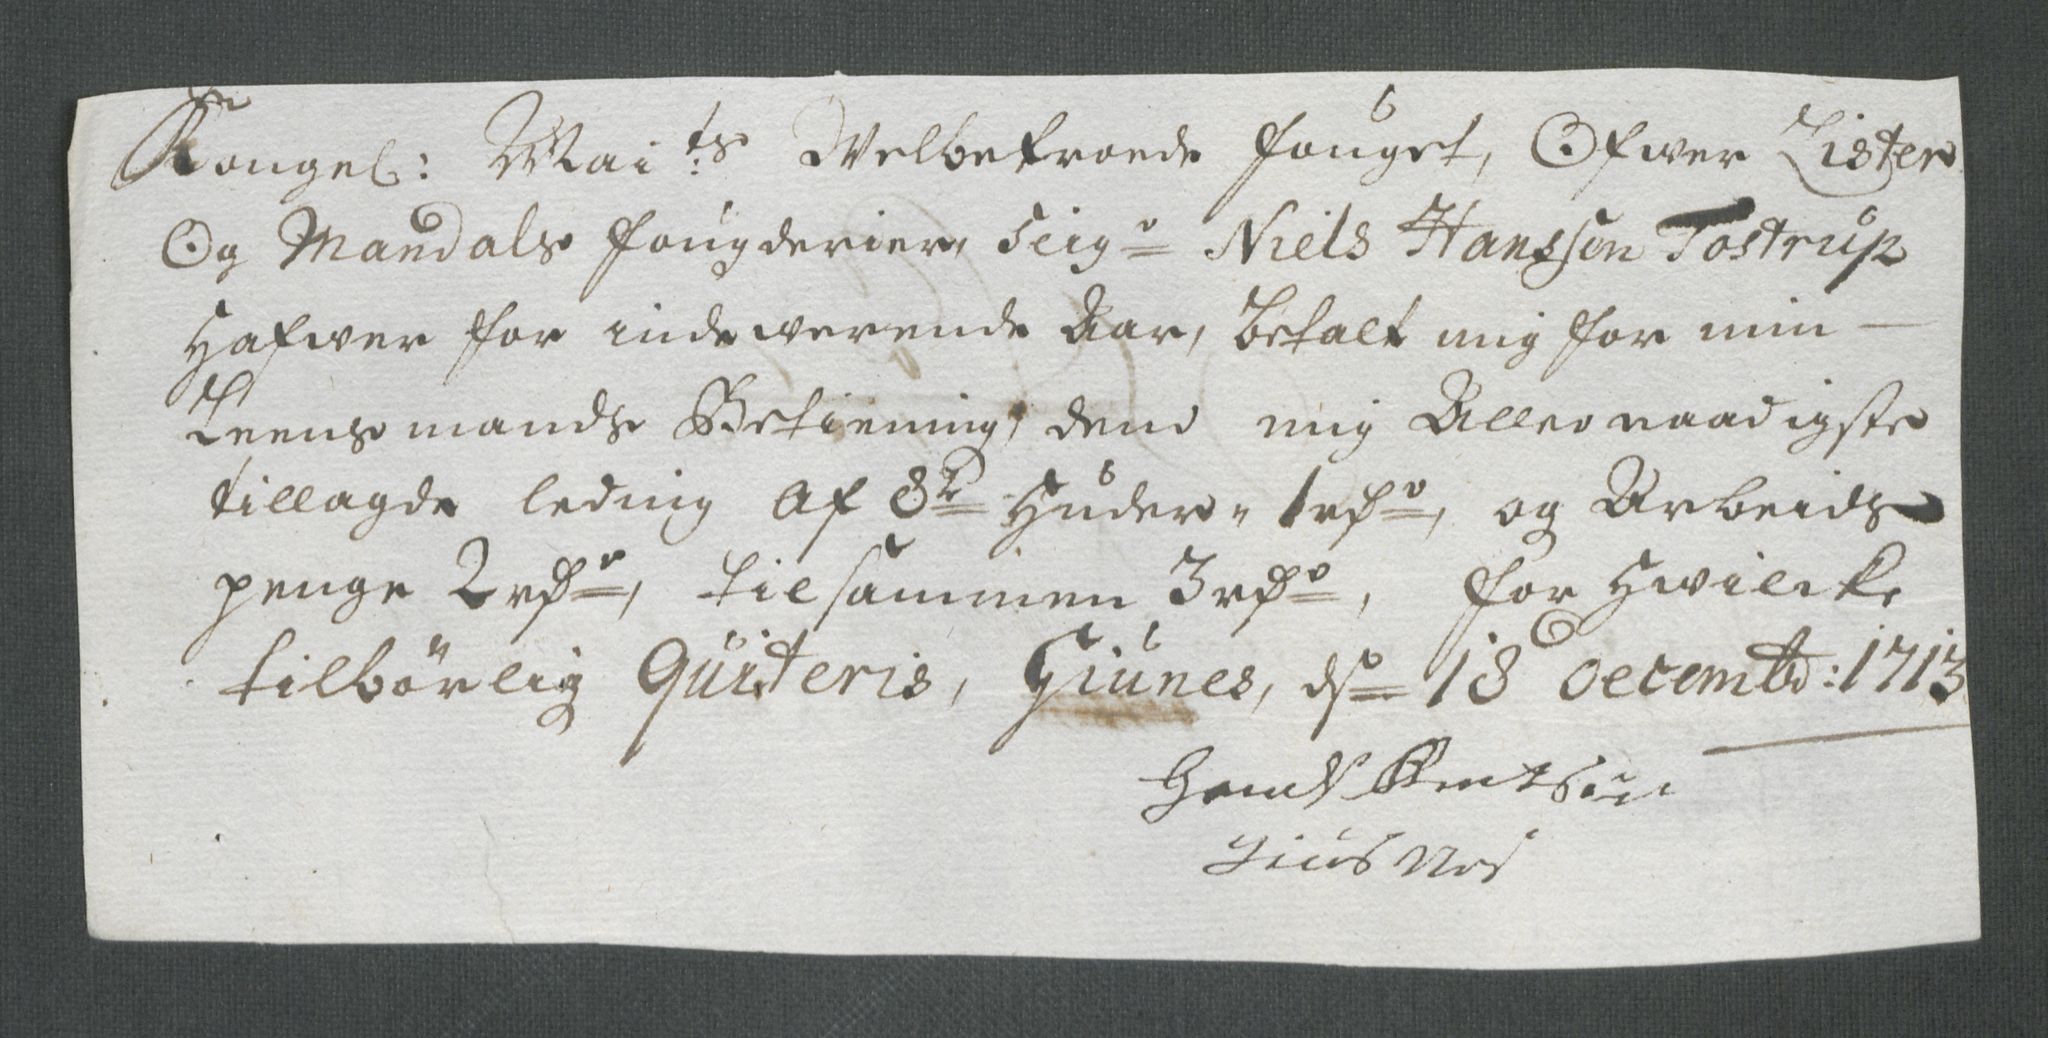 Kongel: Mai:ts Welbetroede fouget, Ofwer Lister
Og Mandals fougderier, Seigr Niels Hansson Tostrup
Hafwer for indewerende Aar, betalt mig for min
Leensmands Bestiening, dend mig Allernaadigste
tillagde leding af Huder, 1 rdr, og Arbeids
penge 2 rdr, tilsammen 3 rdr, for Hwilcke
tilbörlig Qviteris, Giunes, ds 18 Decembr: 1713